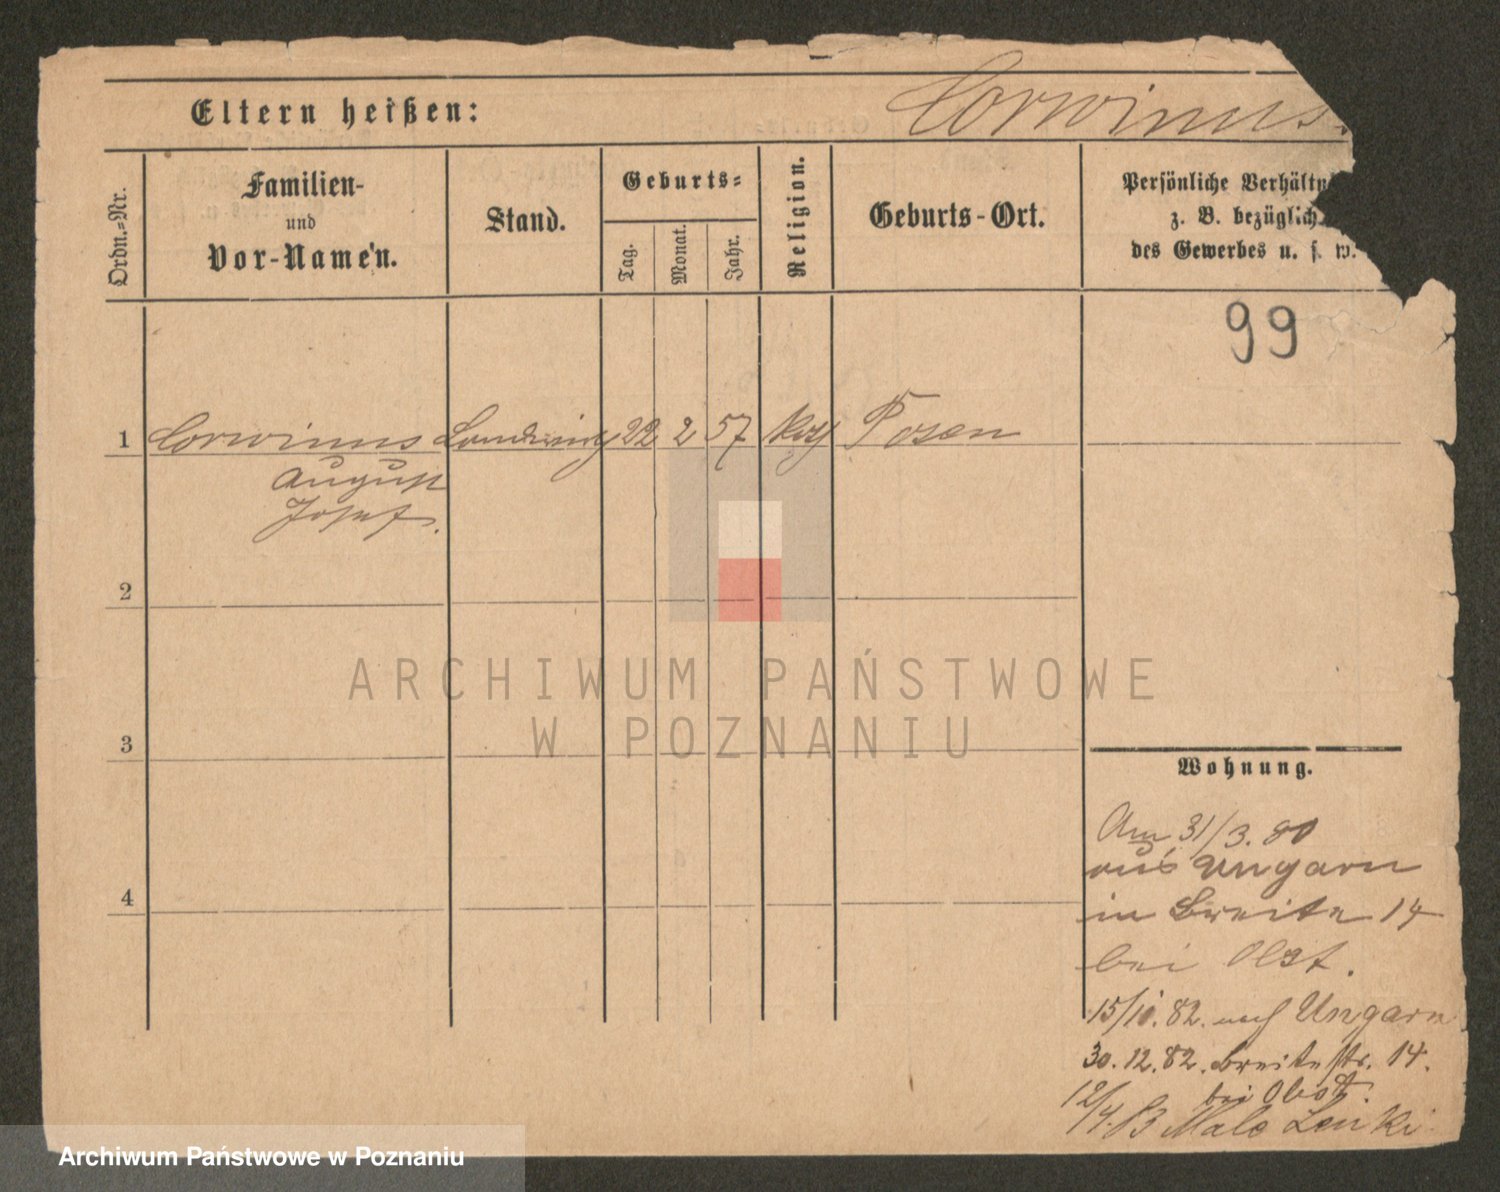 Eltern heißen: Corwinus.
Ordn.=Nr.
Familien-
und
Vor-Namen.
Stand.
Geburts=
Tag.
Monat.
Jahr.
Religion.
Geburts-Ort.
Persönliche Verhältn
z. B. bezüglich
des Gewerbes u. s. w.
99
1 Corwinus 22 2 57 Posen
August
Josef.
2
3
4
Wohnung.
Am 31/3. 80
aus Ungarn
in Breite 14
bei Obst.
15/10. 82. nach Ungarn
30. 12. 82. Breitestr. 14.
bei Obst.
12/4. 83 Male Lenki
ARCHIWUM PAŃSTWOWE
W POZNANIU
Archiwum Państwowe w Poznaniu